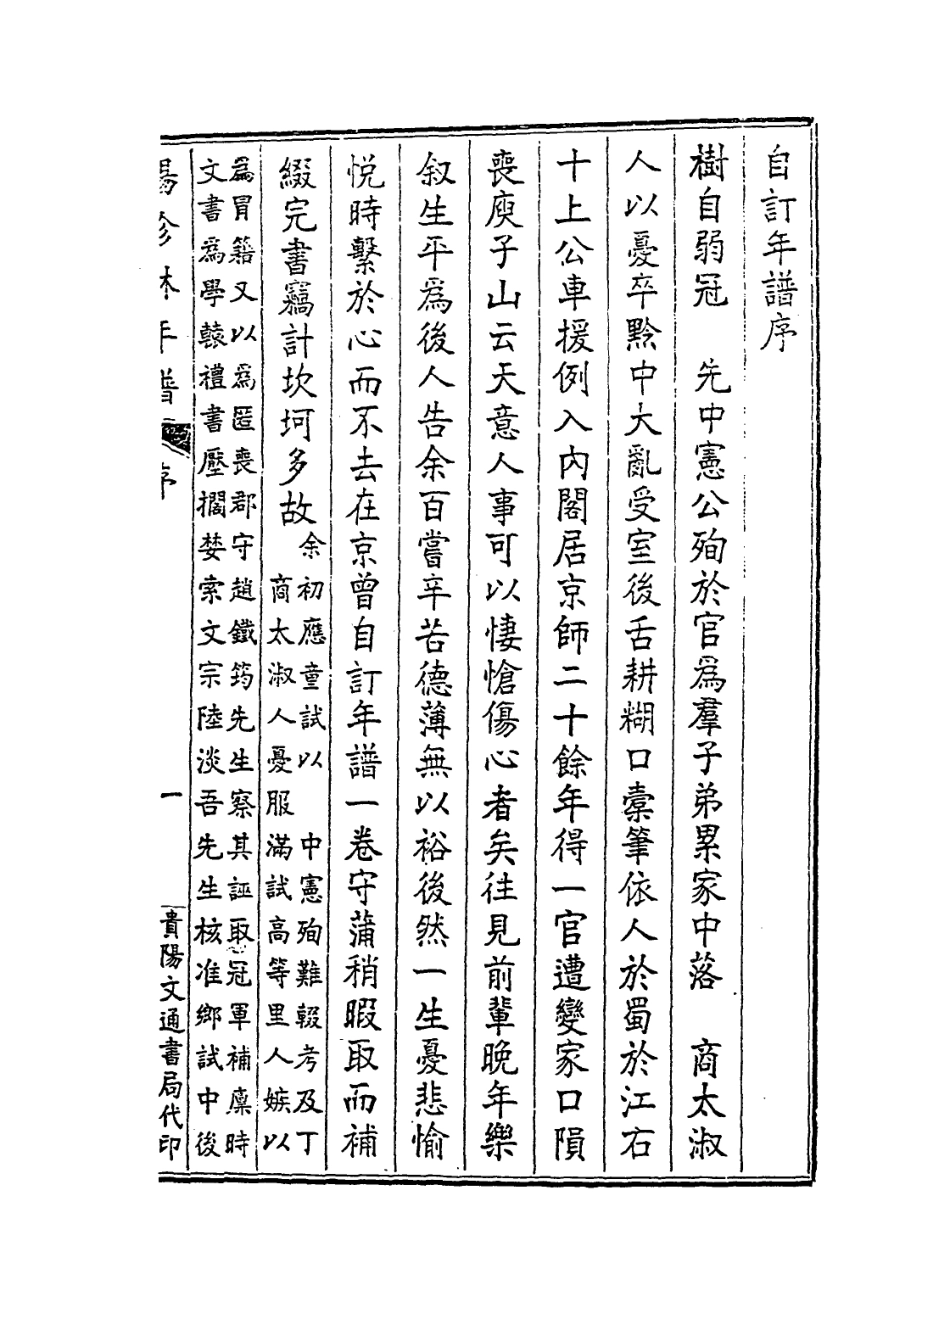 自訂年譜序
樹自弱冠　先中憲公殉於官爲羣子弟累家中落　商太淑
人以憂卒黔中大亂受室後舌耕糊口橐筆依人於蜀於江右
十上公車援例入內閣居京師二十餘年得一官遭變家口隕
喪庾子山云天意人事可以悽愴傷心者矣往見前輩晚年樂
叙生平爲後人告余百嘗辛苦德薄無以裕後然一生憂悲愉
悅時繫於心而不去在京曾自訂年譜一卷守蒲稍暇取而補
綴完書竊計坎坷多故
余初應童試以　中憲殉難輟考及丁
商太淑人憂服滿試高等里人嫉以
爲冒籍又以爲匿喪郡守趙鐵筠先生察其誣取冠軍補廩時
文書爲學轅禮書壓擱婪索文宗陸淡吾先生核准鄉試中後
楊珍林年譜　序　一　貴陽文通書局代印